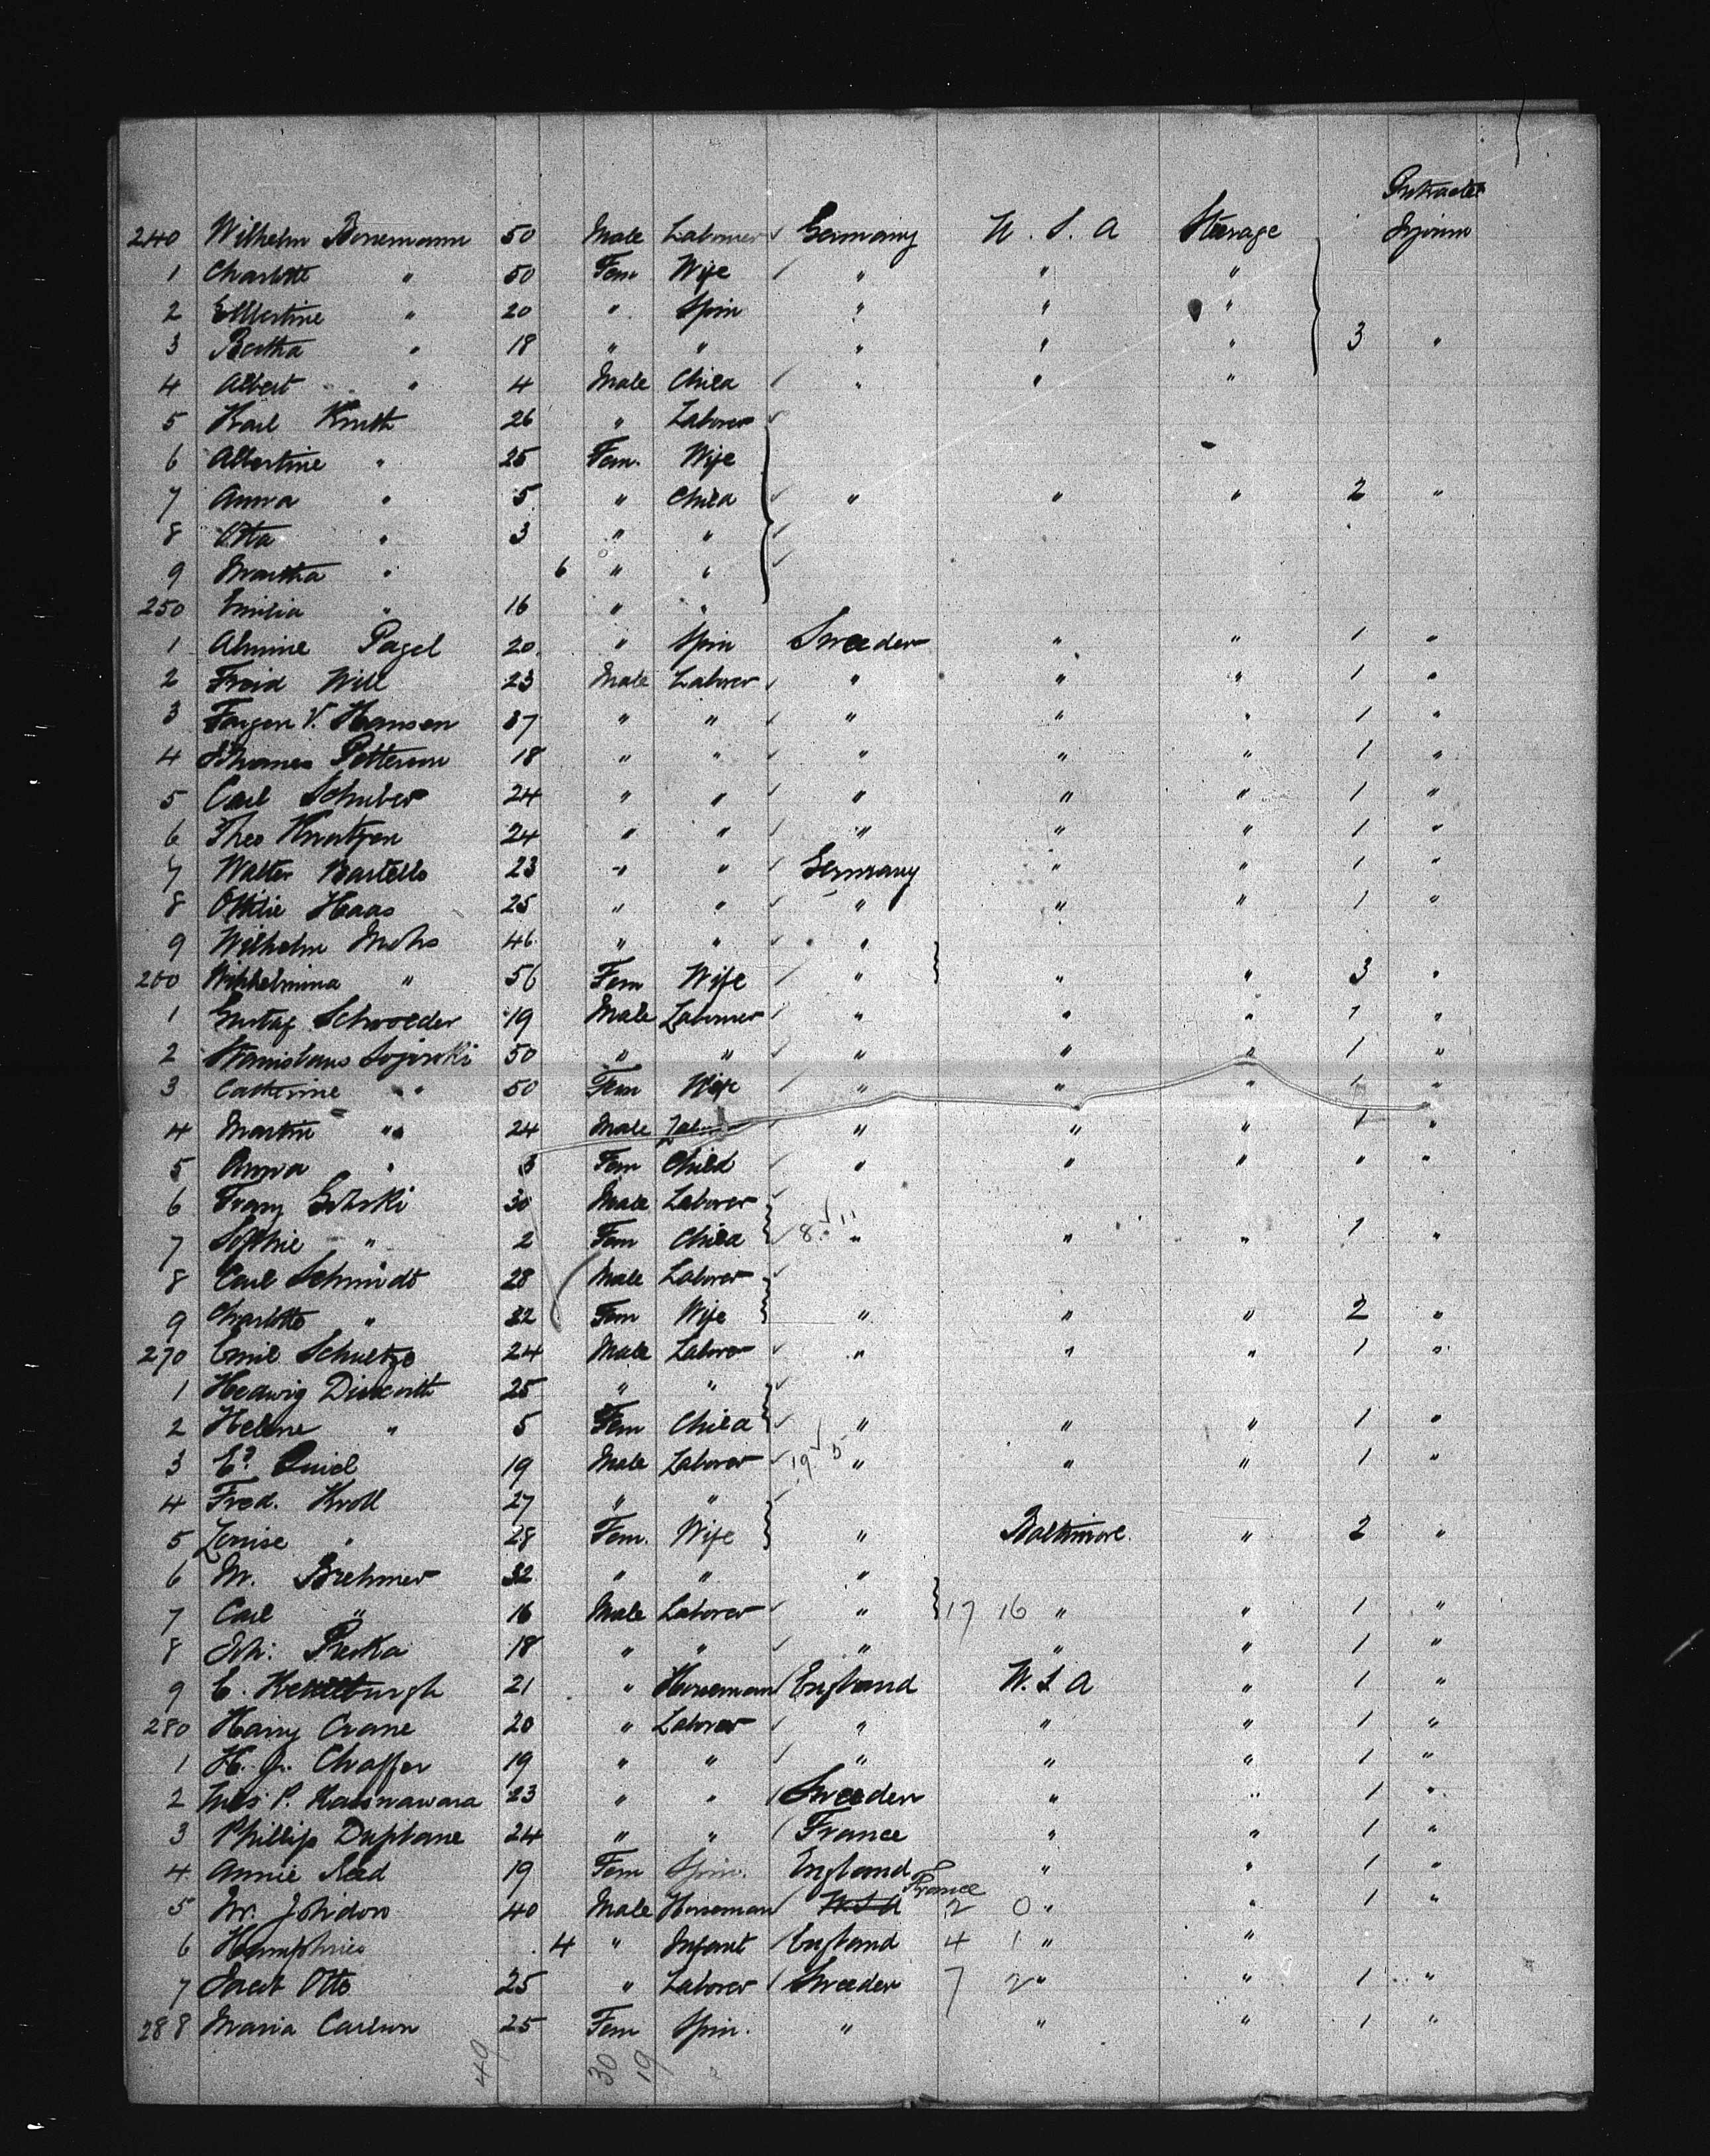 Protracted
240 Wilhelm Bonemann 50 Male Laborer Germany U. S. A Steerage Sojourn
1 Charlotte " 50 Fem Wife " " "
2 Elbertine " 20 " Spin " " "
3 Bertha " 18 " " " " " 3 "
4 Albert " 4 Male Child " " "
5 Karl Kruth 26 " Laborer
6 Albertine " 25 Fem. Wife
7 Anna " 5 " Child " " " 2 "
8 Otta " 3 " "
9 Martha " 6 " "
250 Emilia " 16 " "
1 Almine Pagel 20 " Spin Sweeden " " 1 "
2 Freid Will 23 Male Laborer " " " 1 "
3 V. Hansen 37 " " " " " 1 "
4 Petterson 18 " " " " " 1 "
5 Carl Schuber 24 " " " " " 1 "
6 Theo Knutzen 24 " " " " " 1 "
7 Walter Bartells 23 " " Germany " " 1 "
8 Ottilie Haas 25 " " " " " 1 "
9 Wilhelm Mohs 46 " " "
260 Wilhelmina " 56 Fem Wife " " " 3 "
1 Gustaf Schroeder 19 Male Laborer " " " 1 "
2 Stanislaus 50 " " " " " 1 "
3 Catherine " 50 Fem Wife " " " 1 "
4 Martin " 24 Male Labor " " " 1 "
5 Anna " 3 Fem Child " " " " "
6 Franz 30 Male Laborer
7 Sophie " 2 Fem Child 8 11 " " " 1 "
8 Carl Schmidt 28 Male Laborer
9 Charlotte " 32 Fem Wife " " " 2 "
270 Emil Schultze 24 Male Laborer " " " 1 "
1 Hedwig 25 " "
2 Helene " 5 Fem Child " " " 1 "
3 19 Male Laborer 19 5 " " " 1 "
4 Fred. Kroll 27 " "
5 Louise " 28 Fem. Wife " Baltimore " 2 "
6 M. Brehmer 32 " " "
7 Carl " 16 Male Laborer " 17 16 " " 1 "
8 Preska 18 " " " " " 1 "
9 E. 21 " Horseman England U. S. A " 1 "
280 Harry Crane 20 " Laborer " " " 1 "
1 H. Chaffer 19 " " " " " 1 "
2 P. 23 " " Sweeden " " 1 "
3 Phillip Duphane 24 " " France " " 1 "
4 Annie Reed 19 Fem Spin. England " " 1 "
France
5 40 Male Horseman U.S.A 2 0 " " 1 "
6 Humphries 4 " Infant England 4 1 " "
7 Otto 25 " Laborer Sweeden 7 2 " " 1 "
288 Maria Carlson 25 Fem Spin. " " " 1 "
49 30 19